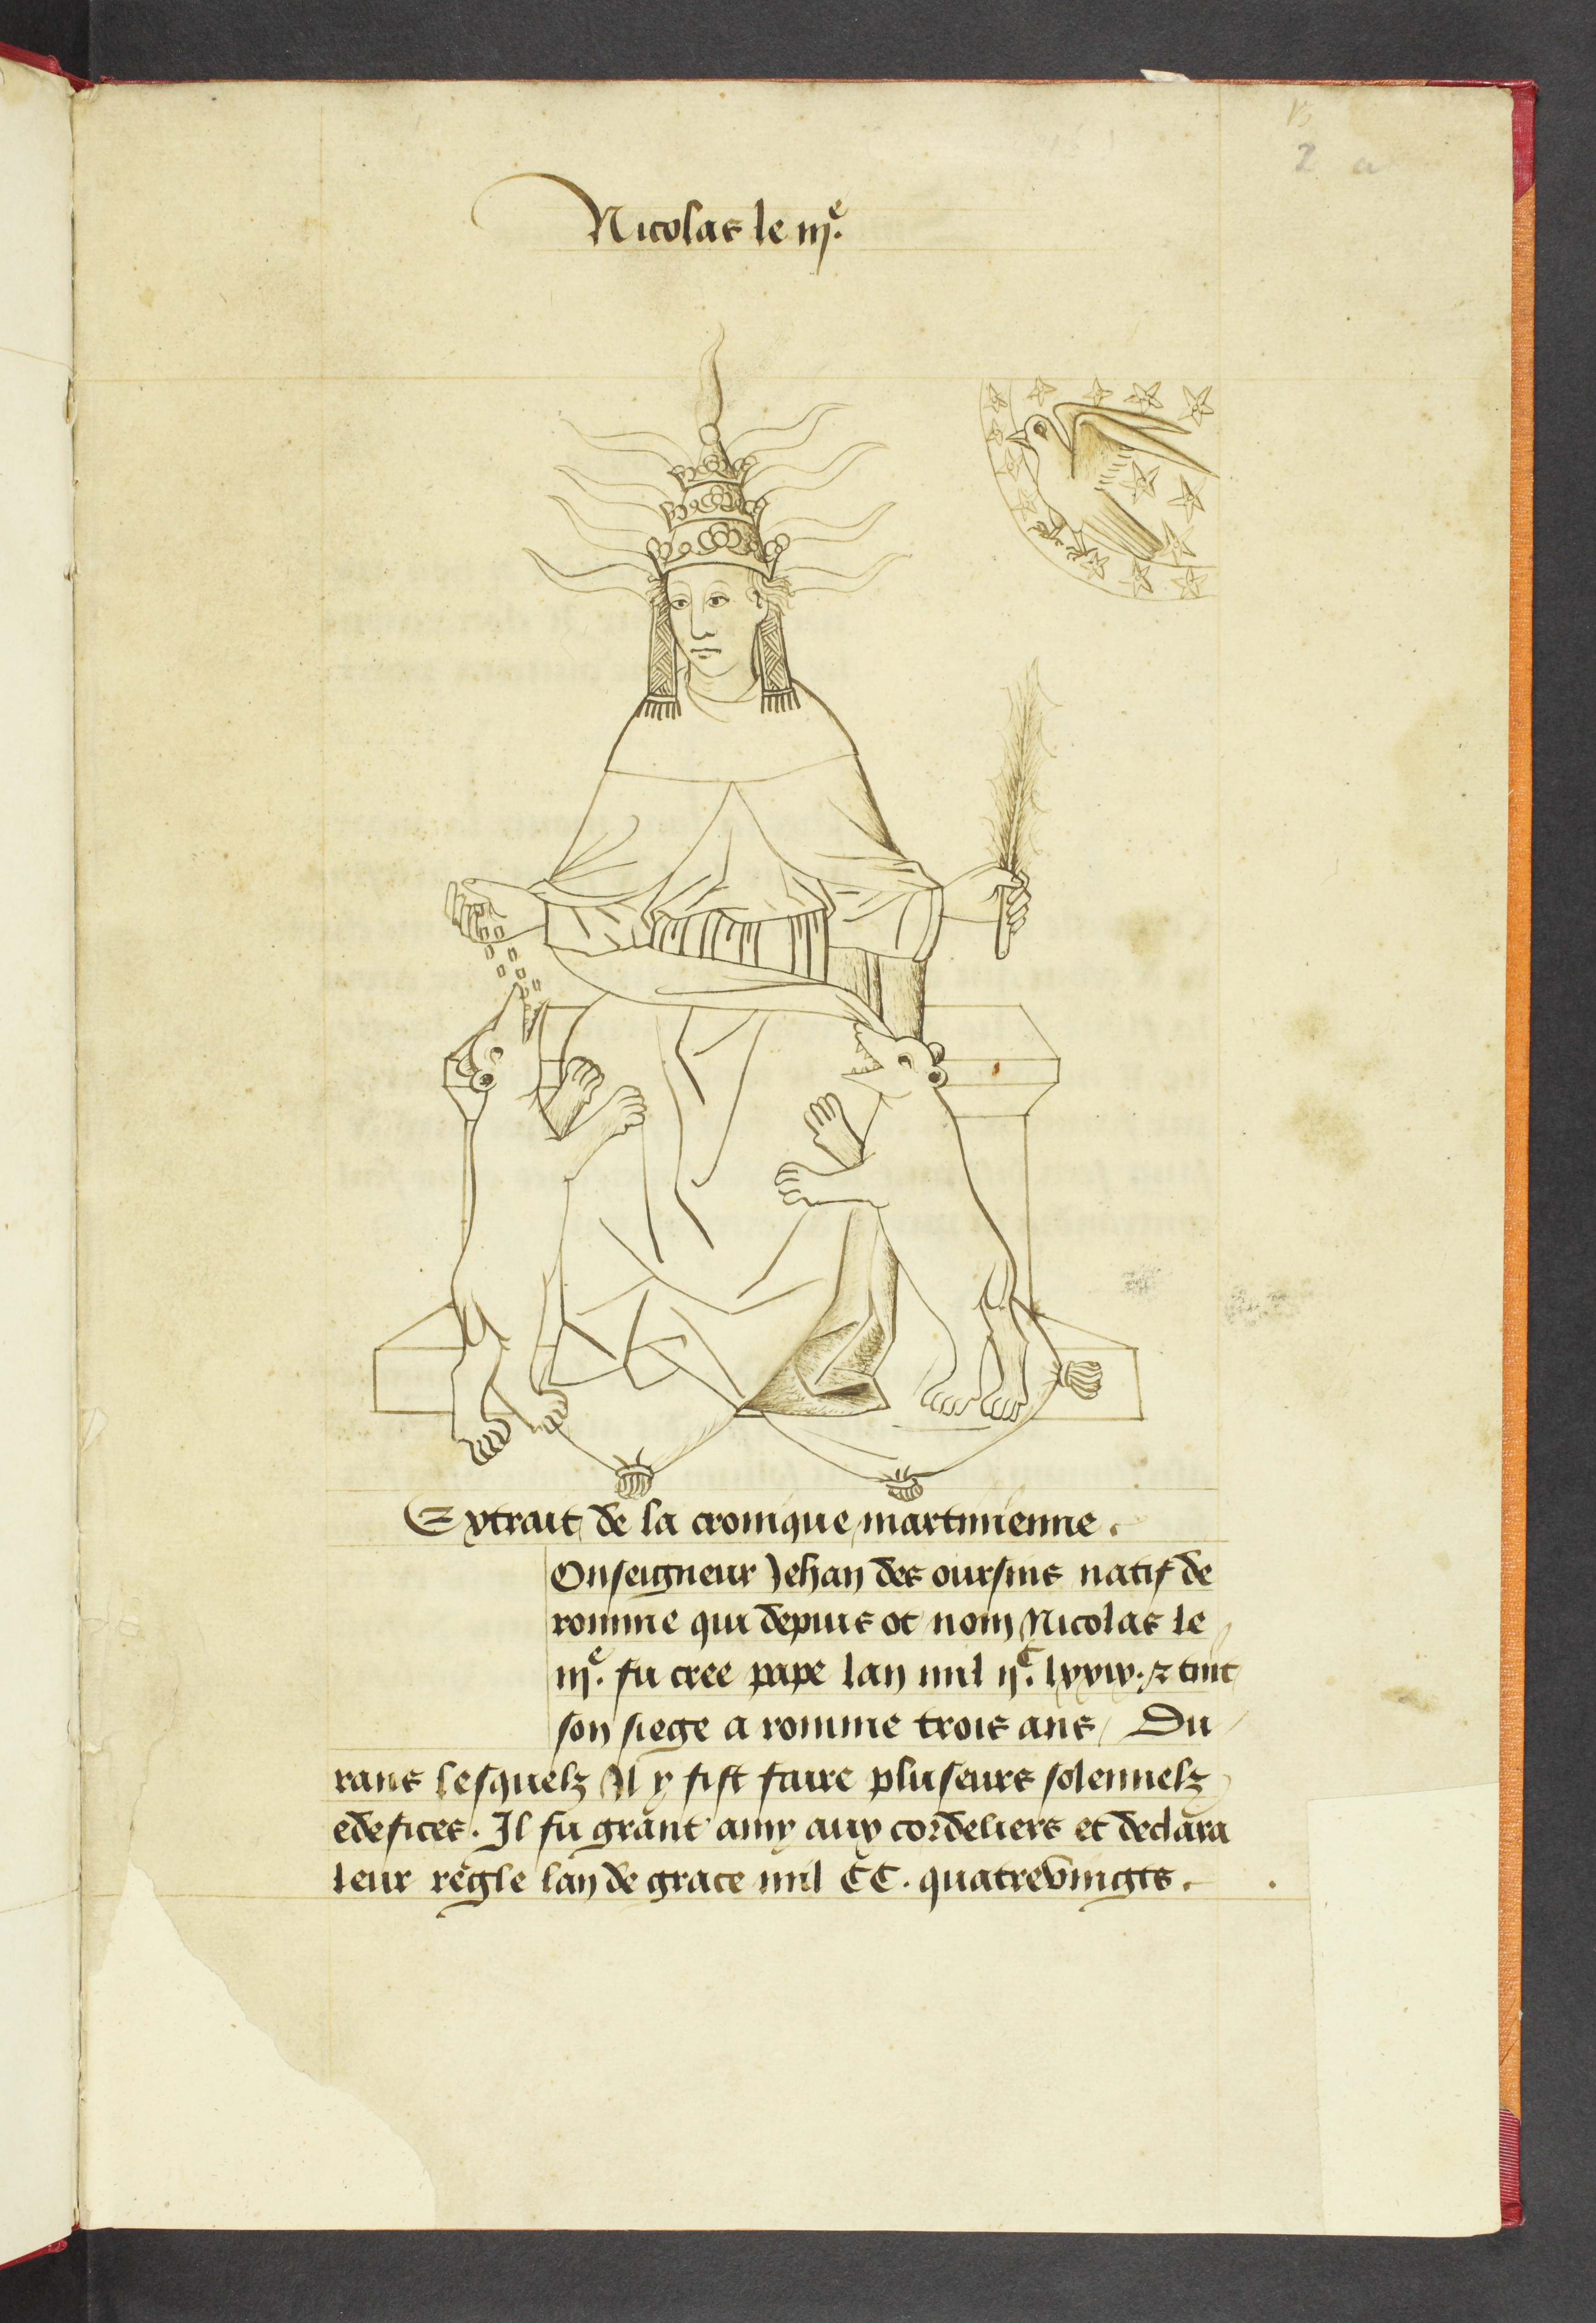 2 a
Nicolas le iije.
Extrait de la cronique martinienne.
Onseigneur Jehan des oursins natif de
romme qui depuis ot nom Nicolas le
iije. fu cree pape lan mil ijC. lxxiv. & tint
son siege a romme trois ans / Du
rans lesquelz Il y fist faire pluseurs solennelz
edefices. Il fu grant amy aux cordeliers et declara
leur regle lan de grace mil CC. quatrevingts.